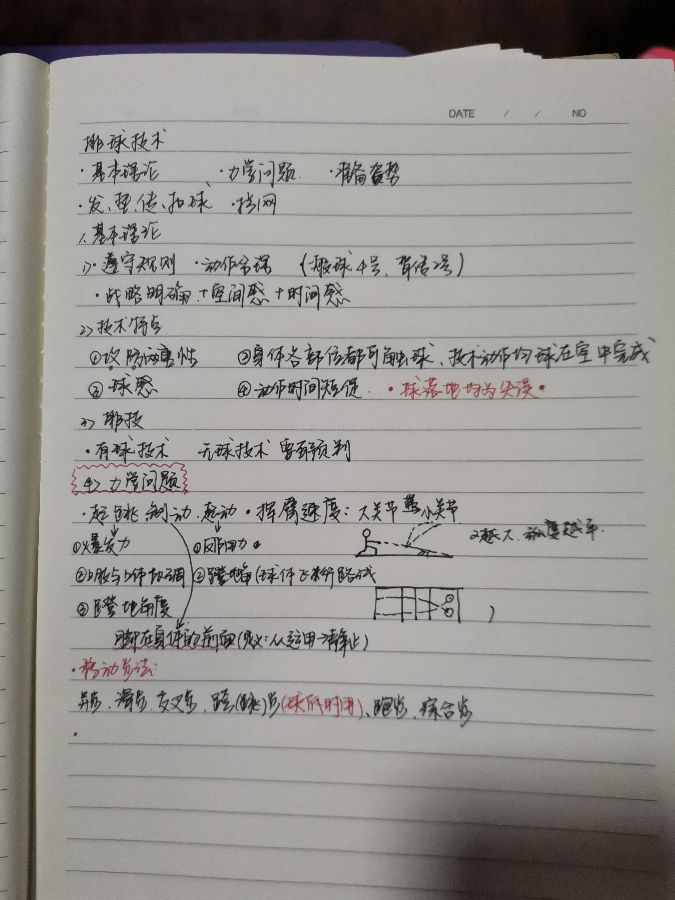 DATE / / NO
排球技术
·基本理论 ·力学问题 ·准备姿势
·发、垫、传、扣球、·拦网
1.基本理论
1)·遵守规则 ·动作合理 (一般球4号、背传2号)
·战略明确+空间感+时间感
2)技术特点
①攻防两重性 ③身体各部位都可触球、技术动作均球在空中完成
②球感 ④动作时间短促 ·球落地均为失误·
3)排技
·有球技术 无球技术 需要预判
4)力学问题
·起跳 制动 起动 ·挥臂速度:大关节 带 小关节
越大、弧度越平
①爆发力 ①反作用力
②上肢与下体协调 ②蹬地角(球体飞来行路线
)
③蹬地角度
脚在身体的前面(定义:从运用→静止)
·移动步法:
并步、滑步、交叉步、跨(跳)步(球低时用)、跑步、综合步